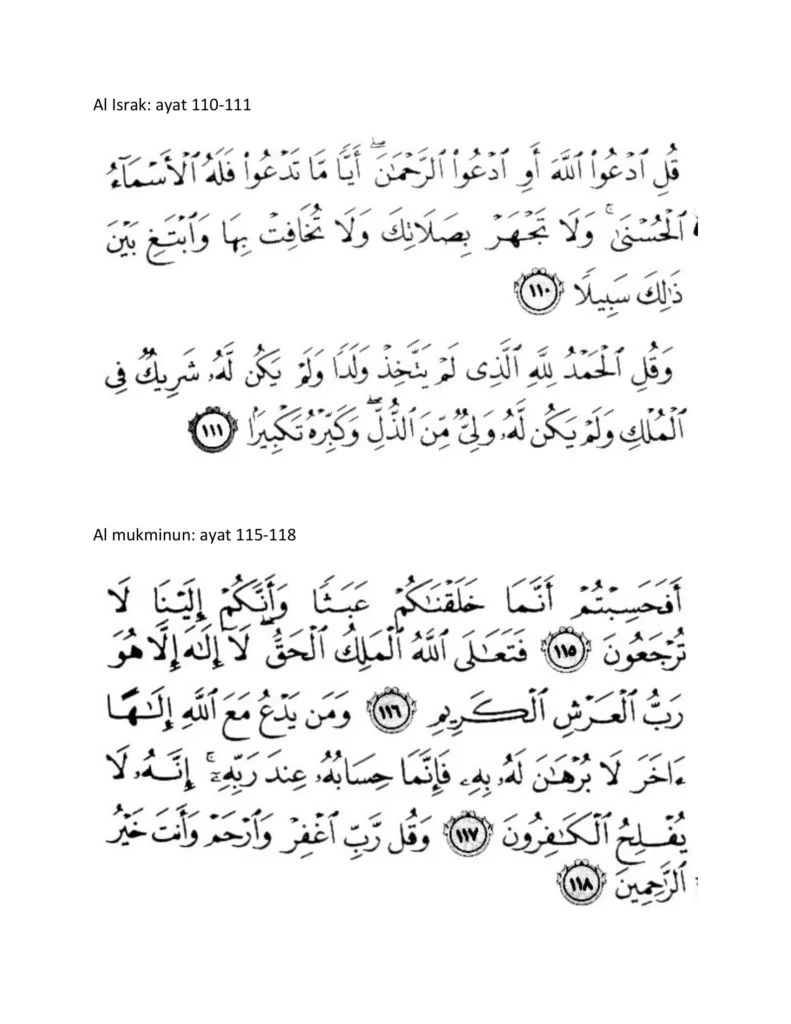 Al Israk: ayat 110-111
قُلِ ٱدْعُوا۟ ٱللَّهَ أَوِ ٱدْعُوا۟ ٱلرَّحْمَـٰنَ ۖ أَيًّا مَّا تَدْعُوا۟ فَلَهُ ٱلْأَسْمَآءُ
ٱلْحُسْنَىٰ ۚ وَلَا تَجْهَرْ بِصَلَاتِكَ وَلَا تُخَافِتْ بِهَا وَٱبْتَغِ بَيْنَ
ذَٰلِكَ سَبِيلًا ١١٠
وَقُلِ ٱلْحَمْدُ لِلَّهِ ٱلَّذِى لَمْ يَتَّخِذْ وَلَدًا وَلَمْ يَكُن لَّهُۥ شَرِيكٌ فِى
ٱلْمُلْكِ وَلَمْ يَكُن لَّهُۥ وَلِىٌّ مِّنَ ٱلذُّلِّ ۖ وَكَبِّرْهُ تَكْبِيرًا ١١١
Al mukminun: ayat 115-118
أَفَحَسِبْتُمْ أَنَّمَا خَلَقْنَـٰكُمْ عَبَثًا وَأَنَّكُمْ إِلَيْنَا لَا
تُرْجَعُونَ ١١٥ فَتَعَـٰلَى ٱللَّهُ ٱلْمَلِكُ ٱلْحَقُّ ۖ لَآ إِلَـٰهَ إِلَّا هُوَ
رَبُّ ٱلْعَرْشِ ٱلْكَرِيمِ ١١٦ وَمَن يَدْعُ مَعَ ٱللَّهِ إِلَـٰهًا
ءَاخَرَ لَا بُرْهَـٰنَ لَهُۥ بِهِۦ فَإِنَّمَا حِسَابُهُۥ عِندَ رَبِّهِۦٓ ۚ إِنَّهُۥ لَا
يُفْلِحُ ٱلْكَـٰفِرُونَ ١١٧ وَقُل رَّبِّ ٱغْفِرْ وَٱرْحَمْ وَأَنتَ خَيْرُ
ٱلرَّٰحِمِينَ ١١٨